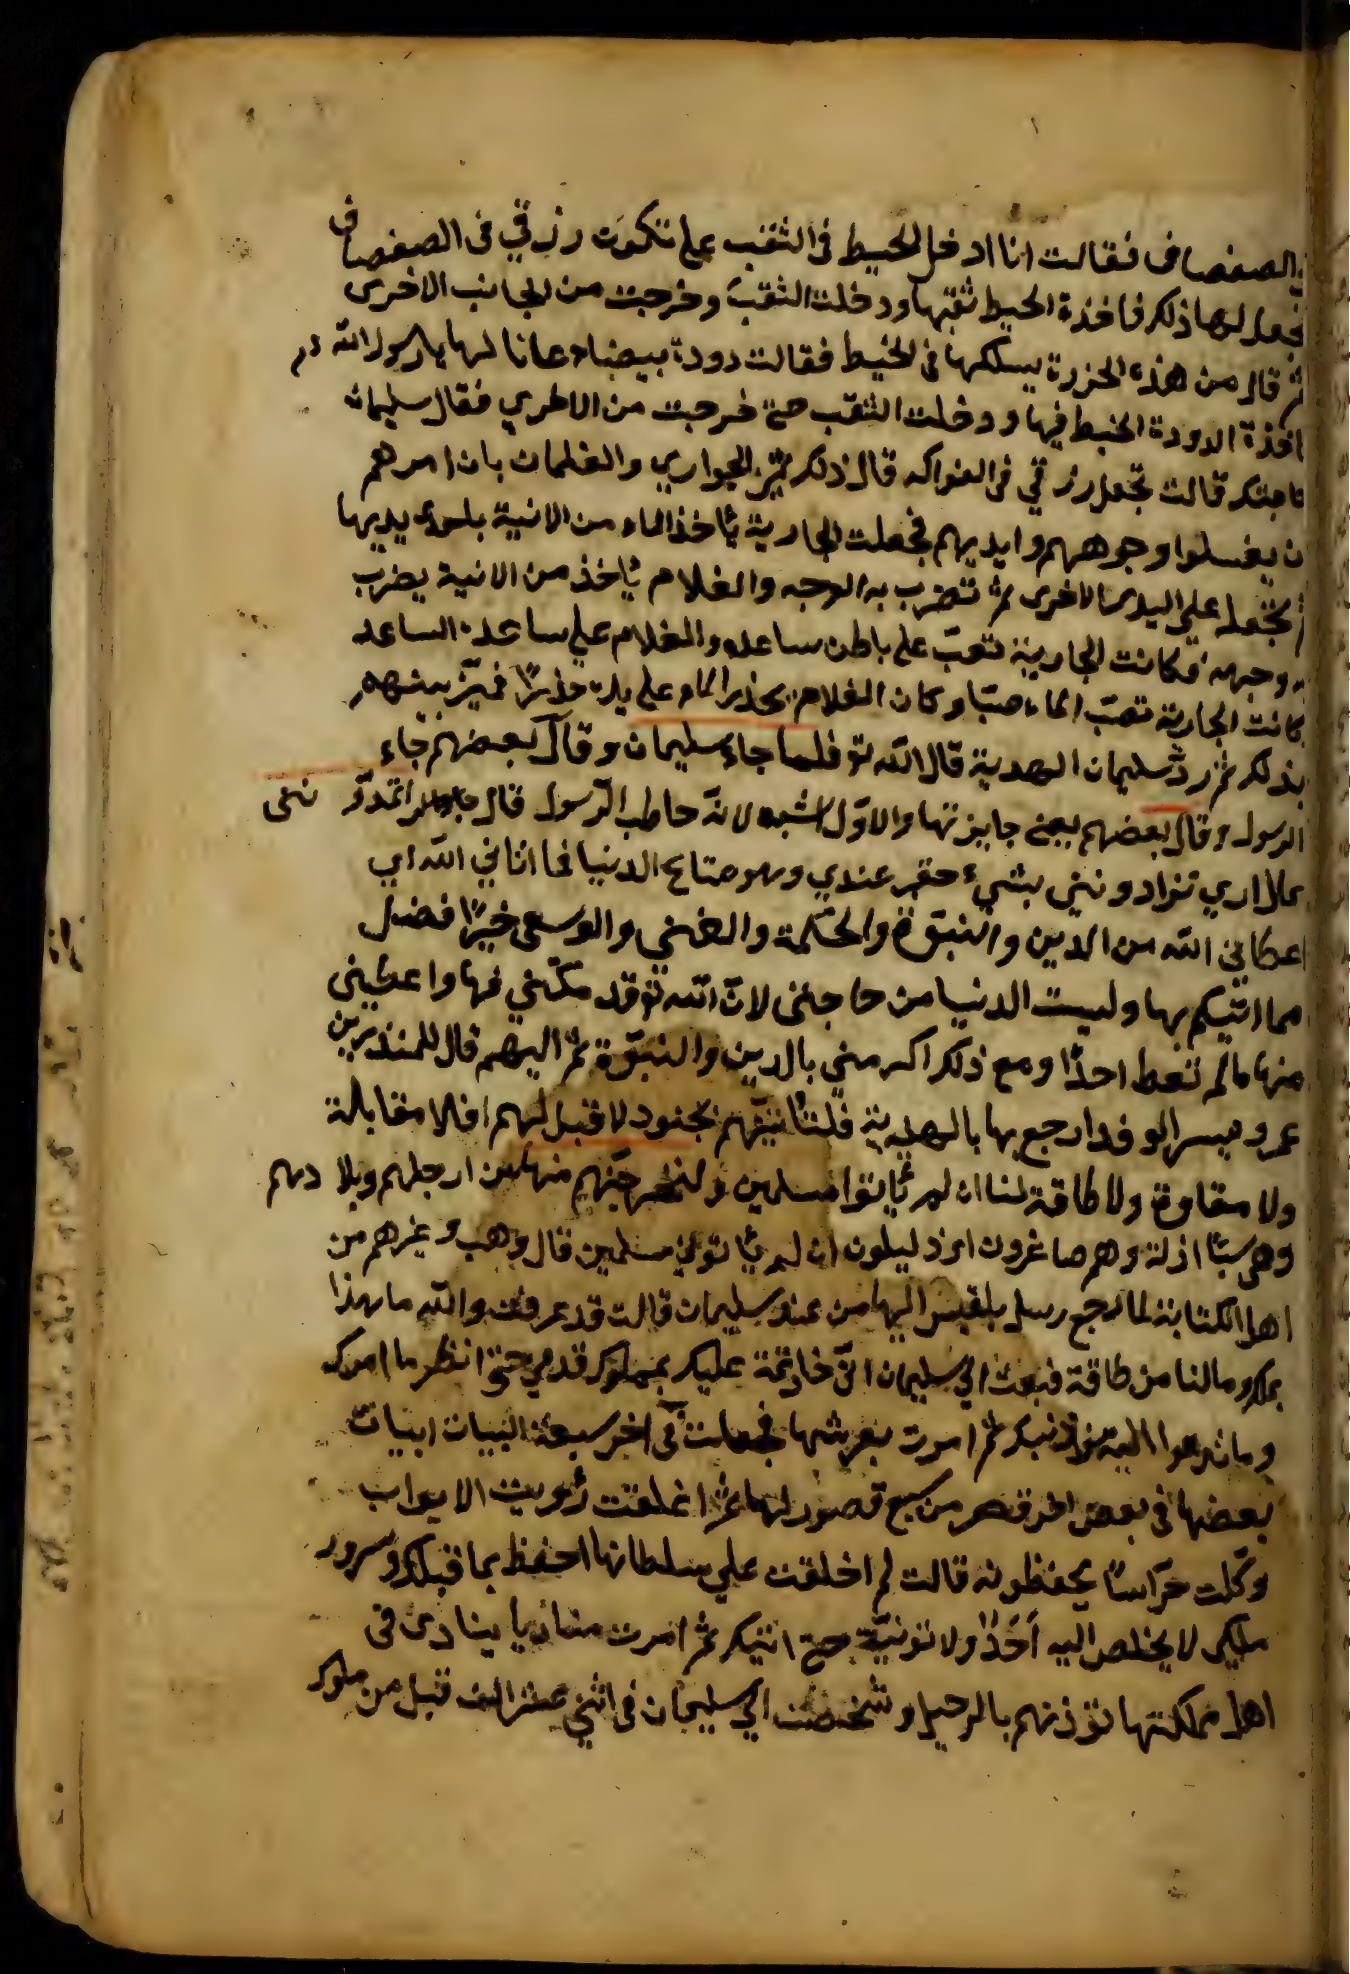 الصفصاف فقالت انا ادخل الخيط في الثقب على تكون رزقي في الصفصاف
فجعل لها ذلك فاخذة الخيط ثقبها ودخلت الثقب وخرجت من الجانب الاخرى
ثم قال من هذه الخرزة يسلكها في الخيط فقالت دودة بيضاء عانا لها يا رسول الله
اخذة الدودة الخيط فيها ودخلت الثقب حتى خرجت من الاخرى فقال سليمان
قالت تجعل رزقي في الفواكه قال ذلك ثم ميز الجواري والغلمان بان امرهم
ن يغسلوا وجوههم وايديهم فجعلت الجارية يأخذ الماء من الانية باحدى يديها
ثم تجعله على اليدى الاخرى ثم تضرب به الوجه والغلام يأخذ من الانية يضرب
به وجهه فكانت الجارية تصب على باطن ساعده والغلام على ساعده الساعد
كانت الجارية تصب الماء صبا وكان الغلام يحذر الماء على يده حذرا فميز بينهم
بذلك ثم رد سليمان الهدية قال الله تو فلما جاء سليمان وقال بعضهم جاء
الرسول وقال بعضهم يعني جايزتها والاول اشبه لانه خاطب الرسول قال اتمدو نني
بمال اري تزاد ونني بشيء حقير عندي وهو متاع الدنيا فما اتاني الله اي
اعطاني الله من الدين والنبوة والحكمة والغني والوسعى خيرا فضل
مما اتيكم بها وليست الدنيا من حاجتى لان الله تو قد مكنني فيها واعطينى
منها مالم تعط احدا ومع ذلك اكرمني بالدين والنبوة ثم اليهم قال للمنذر بن
عمرو ميسر الوفد ارجع بها بالهدية فلنأتينهم بجنود لا قبل لهم افلا مقابلة
ولا مقاوة ولا طاقة لنا ان لم يأتوا مسلمين ولنخرجنهم منها من ارجلهم وبلا دهم
وهى سبا اذلة وهم صاغرون اى ذليلون ان لم يأتوني مسلمين قال وهب وغيرهم من
اهل الكتابة لما رجع رسل بلقيس اليها من عند سليمان قالت قد عرفت والله ما هذا
بملك وما لنا من طاقة فبعث الي سليمان اني قادمة عليك بملوك قدمي حتى انظر ما امرك
وما تدعوا اليه من دنيك ثم امرت بعرشها فجعلت في اخر سبعة ابيات
بعضها في بعض اخر قصر من سبع قصور لها ثم اغلقت الابواب
وكلت حراسا يحفظونه قالت لم اخلقت على سلطانها احفظ بما قبلك وسرور
ملكى لا يخلص اليه احدا ولا تونيه حتى اتيك ثم امرت مناديا ينادى في
اهل مملكتها تؤذنهم بالرحيل وشخصت الي سليمان في اثني عشر الف قبل من ملوك